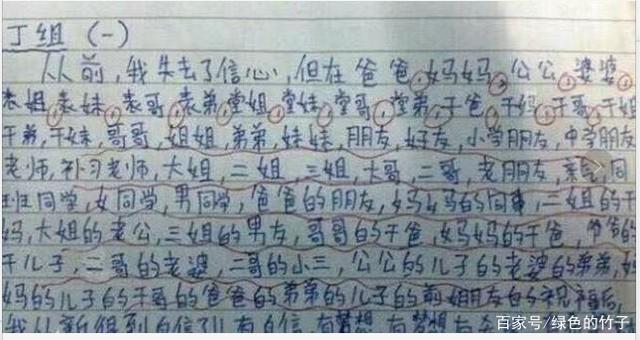 丁组 (一)
从前，我失去了信心，但在爸爸，妈妈，公公，婆婆，
表姐，表妹，表哥，表弟，堂姐，堂妹，堂哥，堂弟，干爸，干妈，干哥，干姐
干弟，干妹，哥哥，姐姐，弟弟，妹妹，朋友，好友，小学朋友，中学朋友
老师，补习老师，大姐，二姐，三姐，大哥，二哥，老朋友，同
班同学，女同学，男同学，爸爸的朋友，妈妈的同事，二姐的干
妈，大姐的老公，三姐的男友，哥哥的干爸，妈妈的干爸，爷爷的
干儿子，二哥的老婆，二哥的小三，公公的儿子的老婆的弟弟，
妈的儿子的干哥的爸爸的弟弟的儿子的前女朋友的祝福后，
我从新得到自信了!有自信，有梦想，有梦想
百家号/绿色的竹子